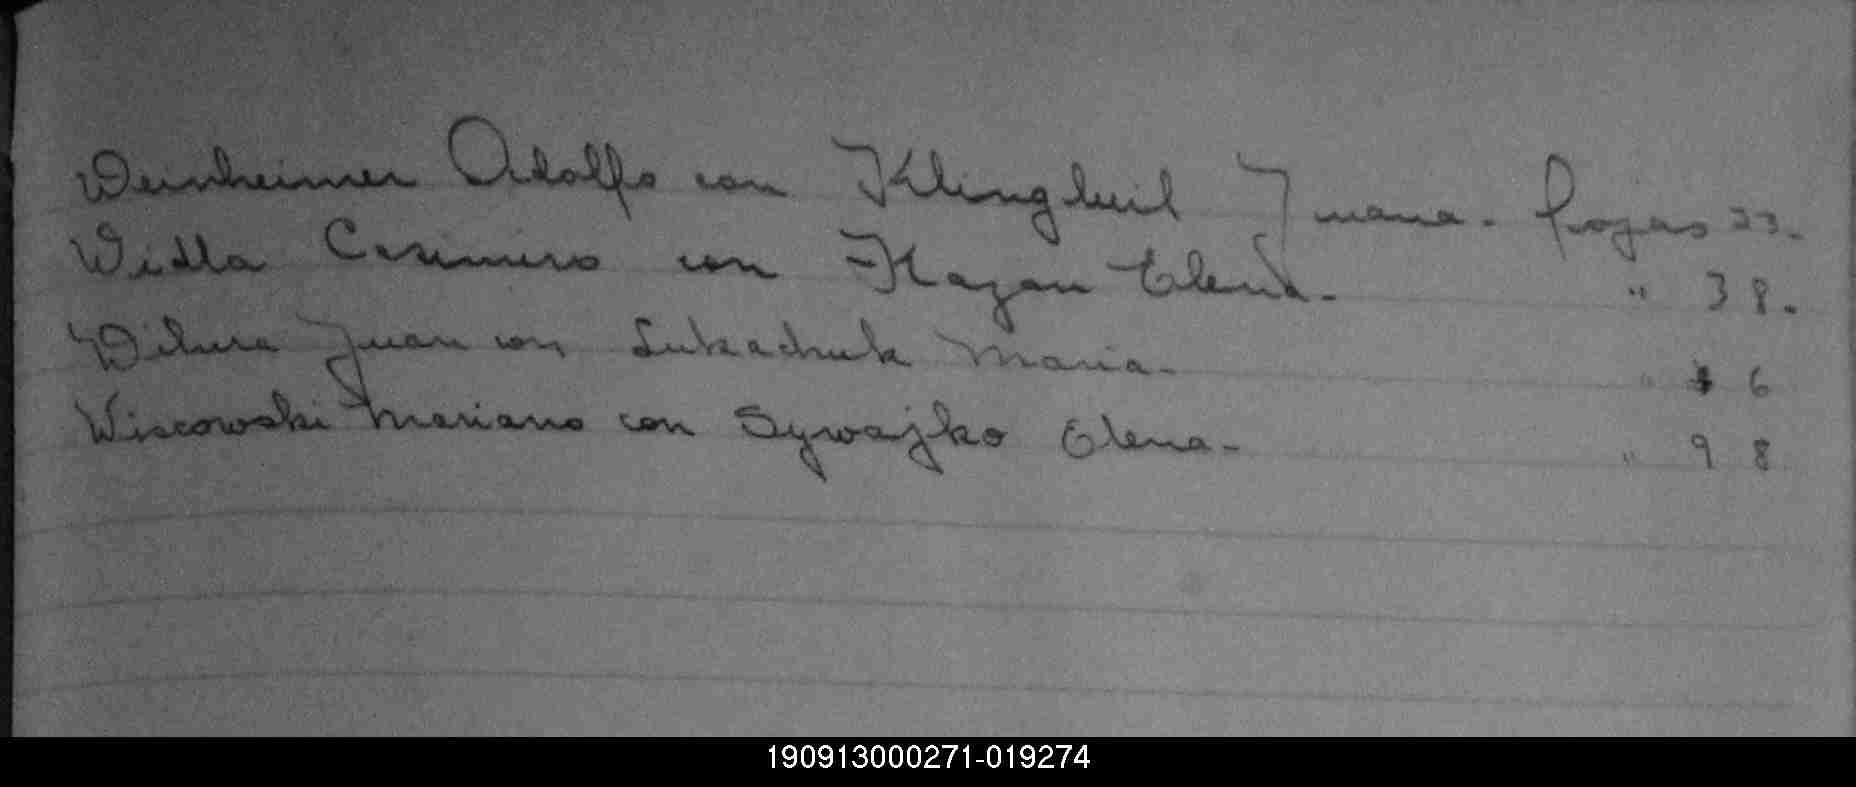 Weinheimer Adolfo con Klingbeil Juana. fojas 23.
Widla Casimiro con Kazan Elena. " 38.
Juan con Lukachuk Maria. " 6
Wiscowski Mariano con Sywajko Elena. " 98
190913000271-019274